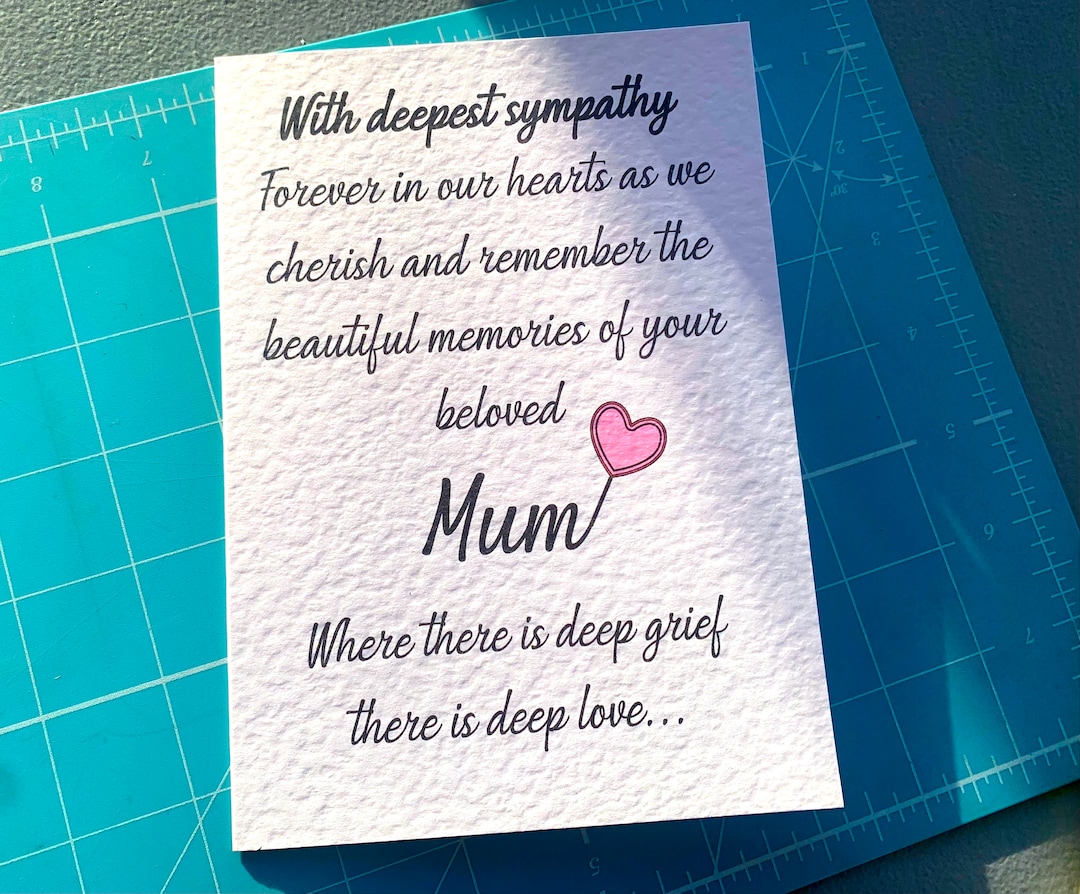 With deepest sympathy
Forever in our hearts as we
cherish and remember the
beautiful memories of your
beloved
Mum
Where there is deep grief
there is deep love...
8
7
1
2
30°
3
4
5
6
7
5